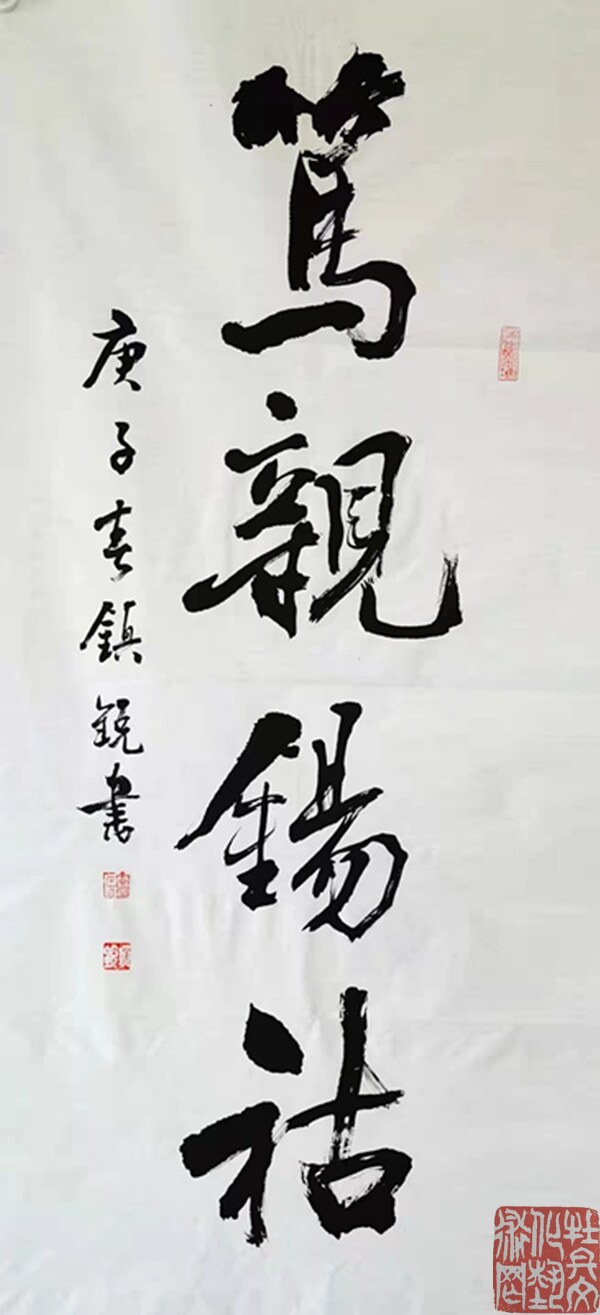 篤親錫祜
庚子春鎮銳書